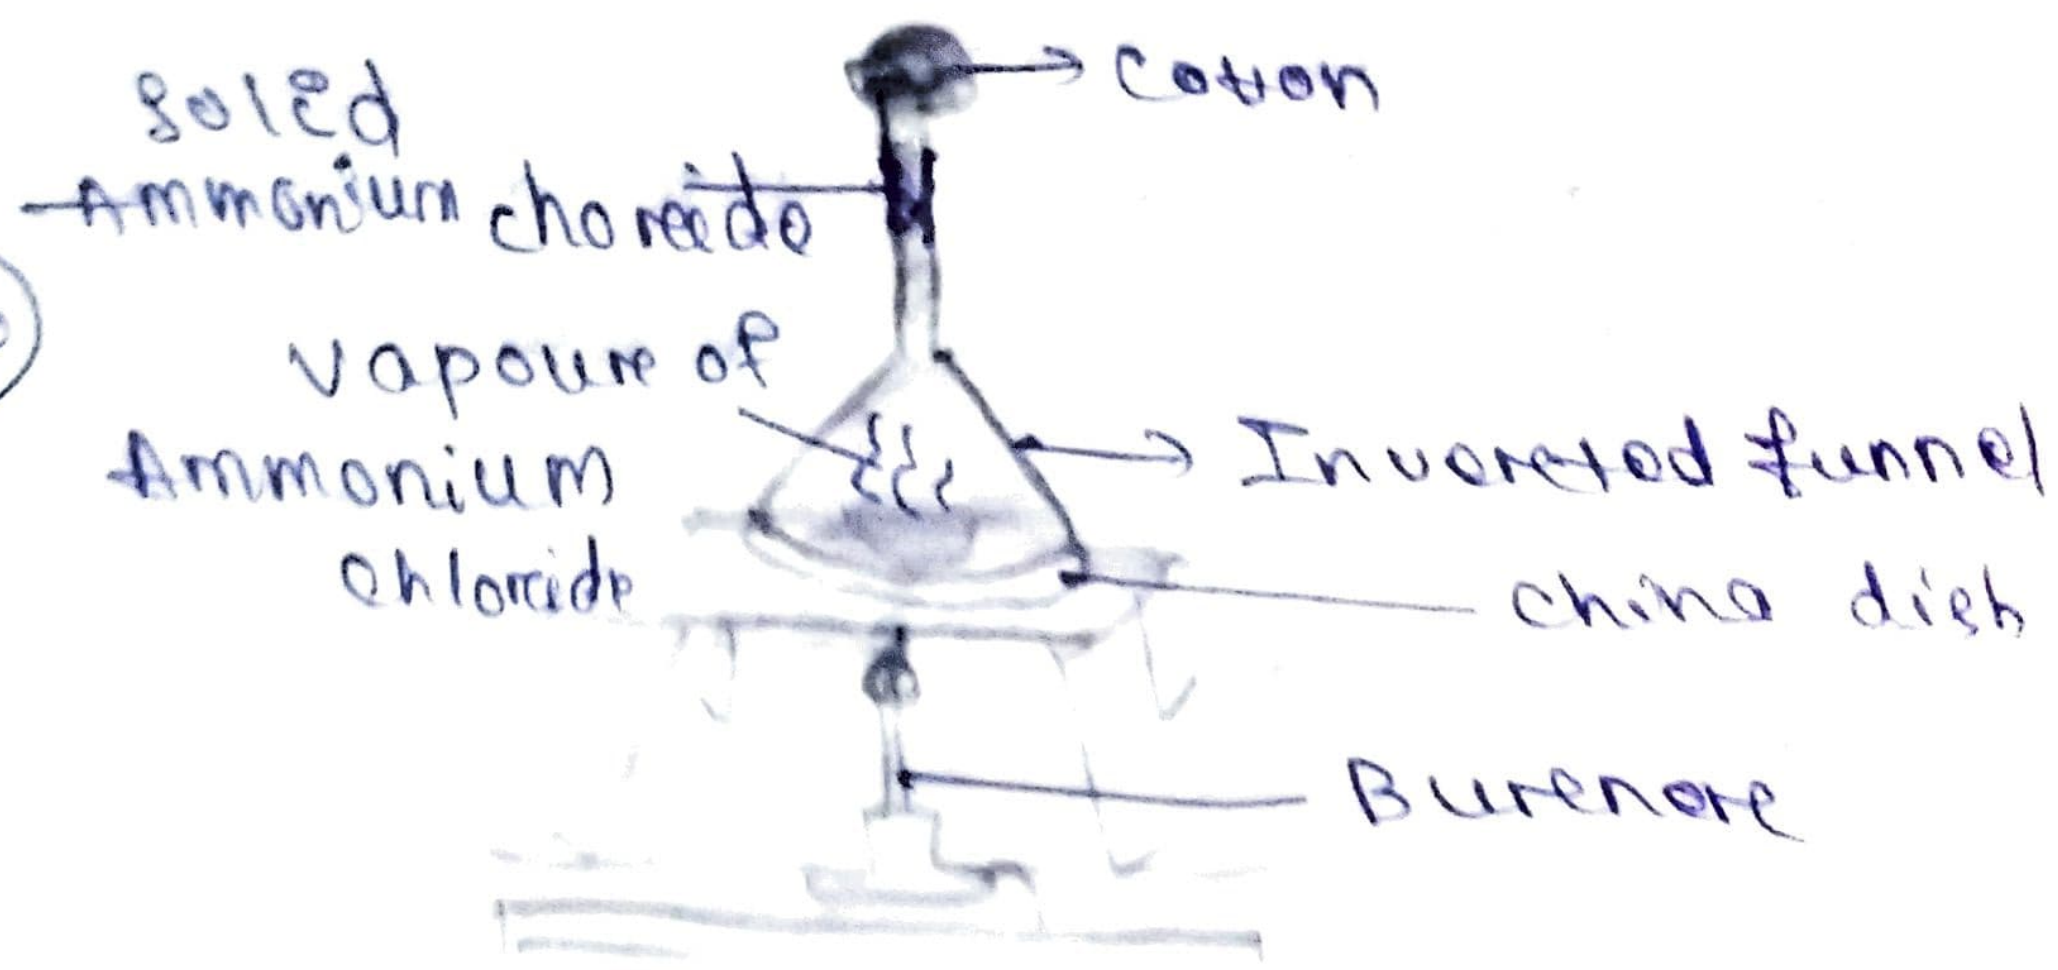 Cotton
Soled
Ammonium choreido
vapoure of
Ammonium
Chlorcide
Invereted funnel
china dish
Burenore